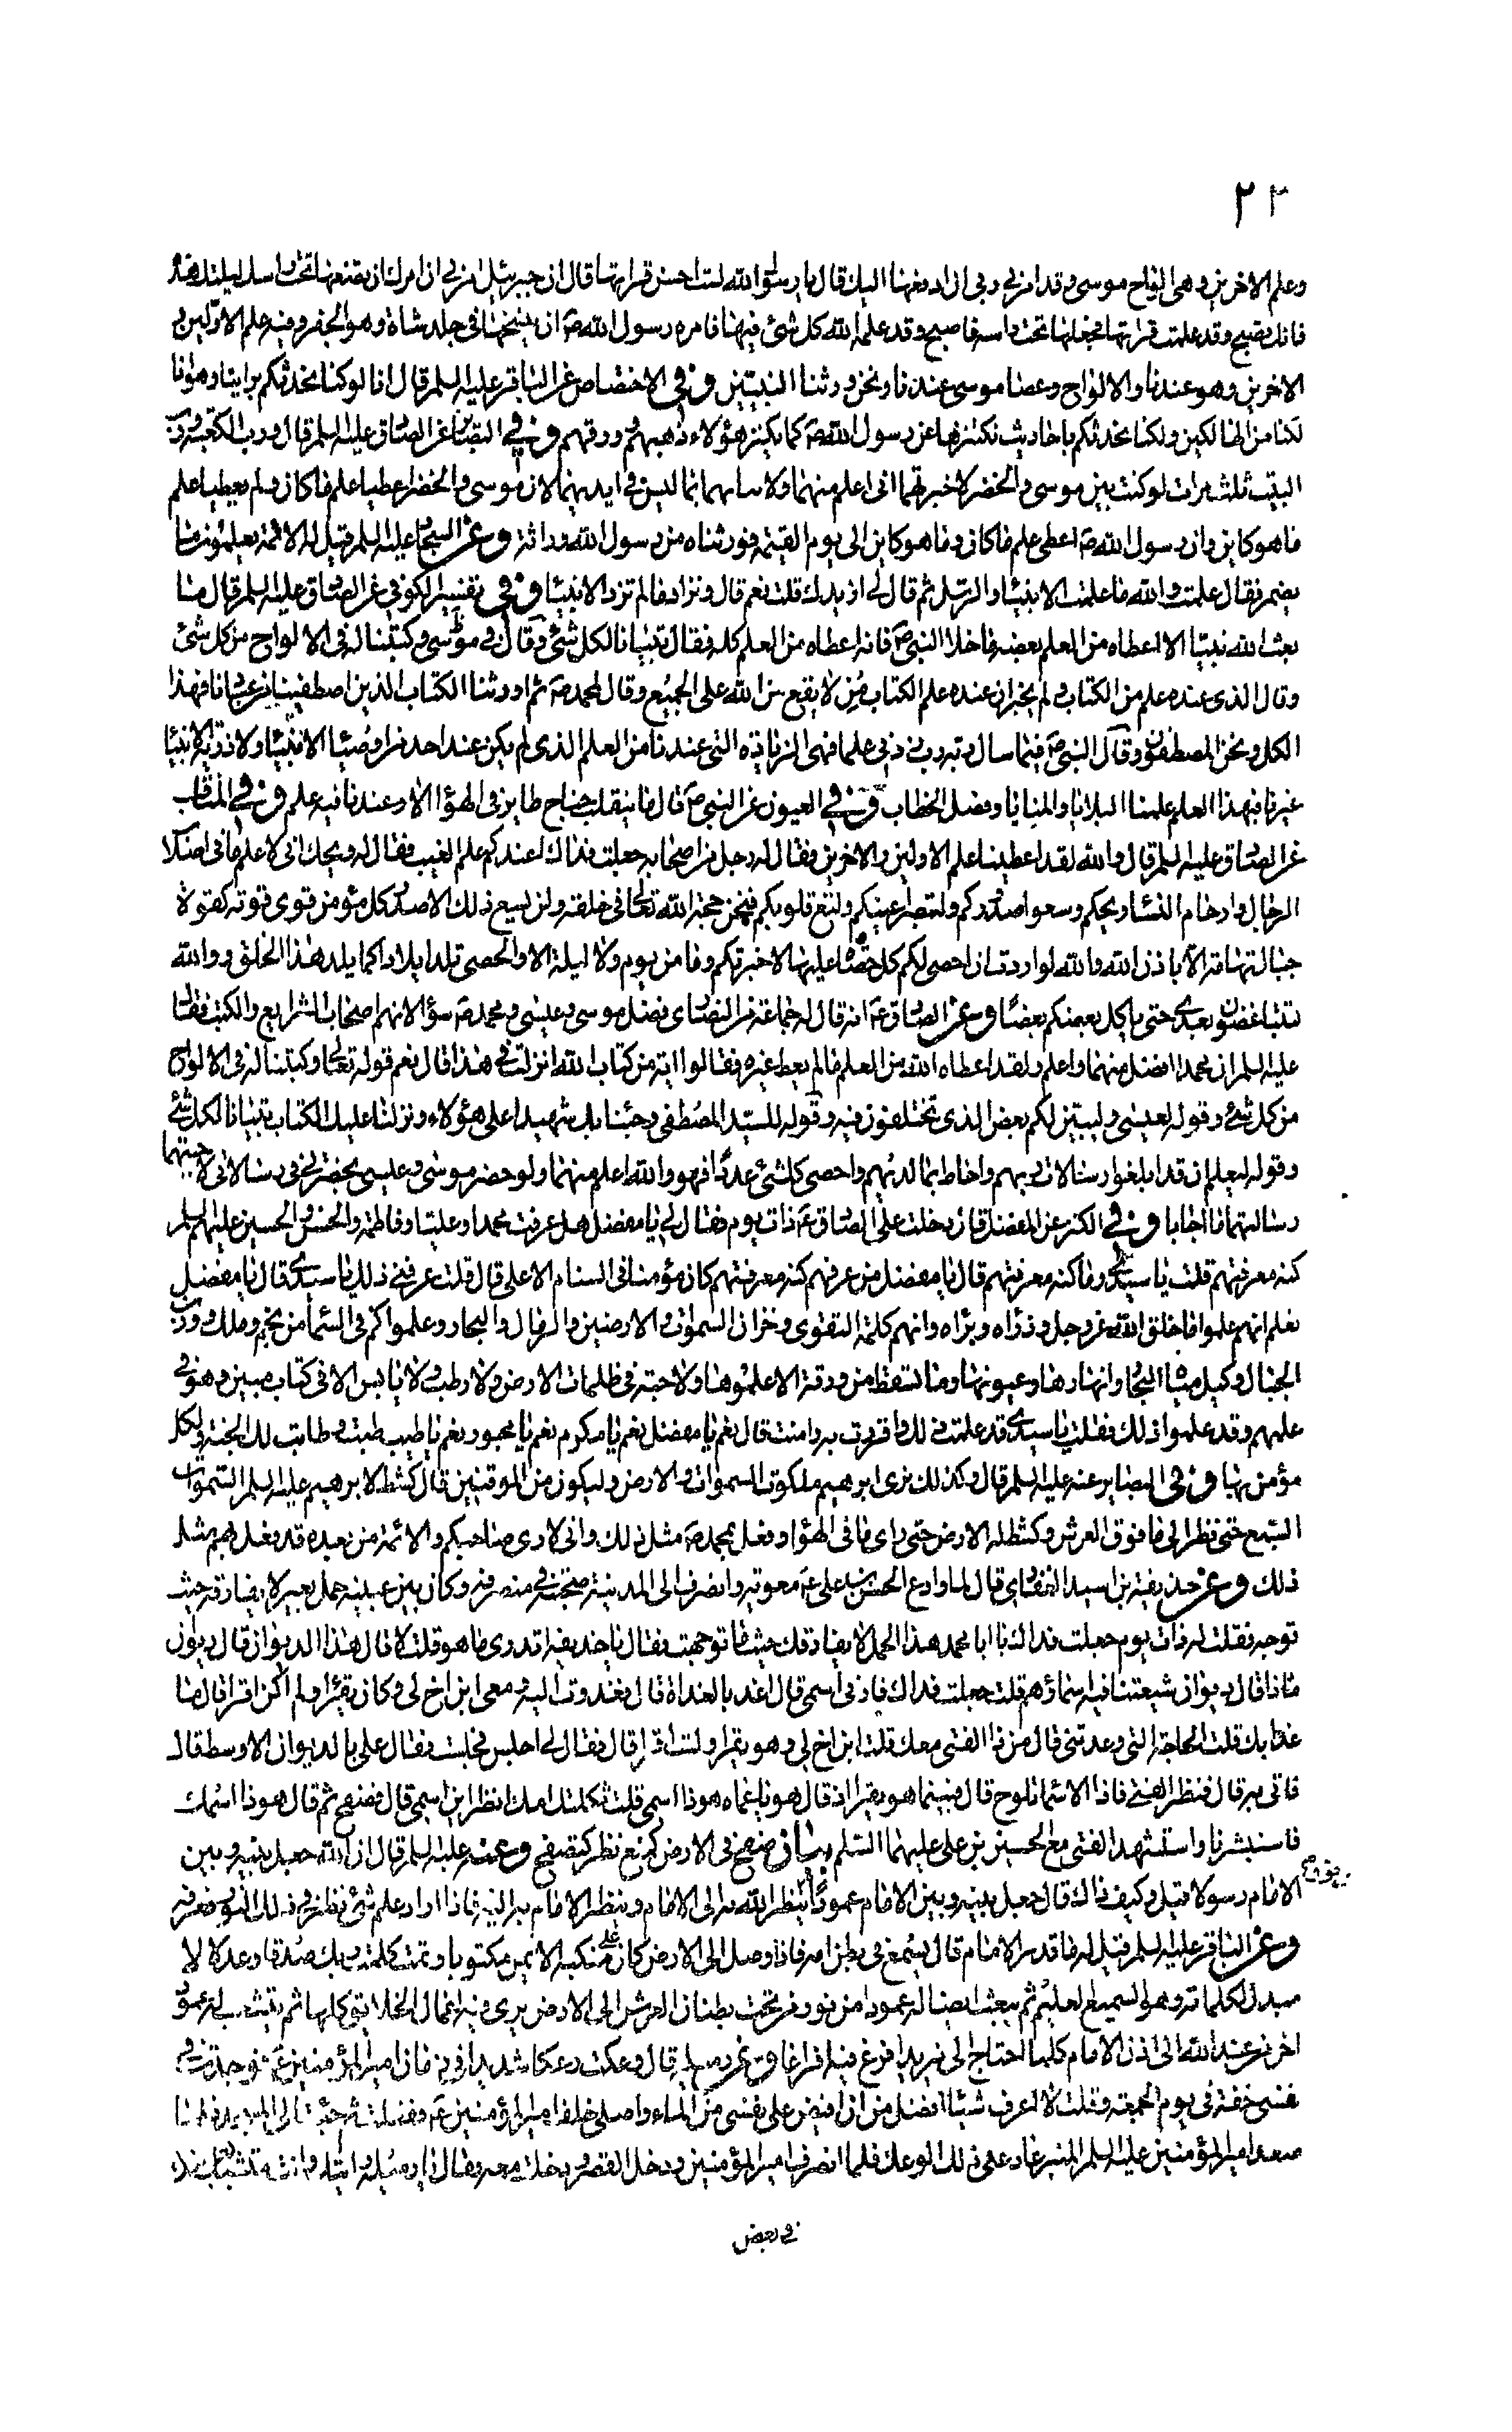 ٢٢
وعلم الاخرين وهى الواح موسى وقد امرنى ربى ان ادفعها اليك قال يا رسول الله لست احسن قرائتها قال ان جبرئيل امرنى ان امرك ان تضعها تحت راسك ليلتك هذه
فانك تصبح وقد علمت قرائتها فجعلها تحت راسه فاصبح وقد علمه الله كل شئ فيها فامره رسول الله ص ان ينسخها فى جلد شاة وهو الجفر وفيه علم الاولين و
الاخرين وهو عندنا والالواح وعصا موسى عندنا ونحن ورثنا النبيين وفى الاختصاص عن الباقر عليه السلم قال انا لو كنا نحدثكم براينا وهوانا
لكنا من الهالكين ولكنا نحدثكم باحاديث نكنزها عن رسول الله ص كما يكنز هؤلاء ذهبهم وورقهم وفى البصائر عن الصادق عليه السلم قال ورب الكعبة ورب
البيت ثلث مرات لو كنت بين موسى والخضر لاخبرتهما انى اعلم منهما ولانباتهما بما ليس فى ايديهما لان موسى والخضر اعطيا علم ما كان ولم يعطيا علم
ما هو كاين وان رسول الله ص اعطى علم ما كان وما هو كاين الى يوم القيمة فورثناه من رسول الله وراثة وعن عليه السلم قيل له الائمة يعلمون ما
يضمر فقال علمت والله ما علمت الانبياء والرسل ثم قال لى ازيدك قلت نعم قال ونزاد ما لم تزد الانبياء وفى تفسير الكوفى عن الصادق عليه السلم قال ما
بعث الله نبيا الا اعطاه من العلم بعضه ما خلا النبى ص فانه اعطاه من العلم كله فقال تبيانا لكل شئ وقال فى موسى وكتبنا له فى الالواح من كل شئ
وقال الذى عنده علم من الكتاب ولم يخبر ان عنده علم الكتاب ومن لا يقع من الله على الجميع وقال لمحمد ص ثم اورثنا الكتاب الذين اصطفينا من عبادنا فهذا
الكل ونحن المصطفون وقال النبى ص فيما سال ربه رب زدنى علما فهى الزيادة التى عندنا من العلم الذى لم يكن عند احد من اوصياء الانبياء ولا ذرية الانبياء
غيرنا فبهذا العلم علمنا البلايا والمنايا وفصل الخطاب وفى العيون عن النبى ص قال ما ينقلب جناح طاير فى الهواء الا وعندنا فيه علم وفى المناقب
عن الصادق عليه السلم قال والله لقد اعطينا علم الاولين والاخرين فقال له رجل من اصحابه جعلت فداك اعندكم علم الغيب فقال له ويحك انى لاعلم ما فى اصلاب
الرجال وارحام النساء ويحكم وسعوا صدوركم ولتبصر اعينكم ولتع قلوبكم فنحن حجة الله تعالى فى خلقه ولن يسع ذلك الا صدر كل مؤمن قوى قوته كقوة
جبال تهامة الا باذن الله والله لو اردت ان احصى لكم كل حصاة عليها لاخبرتكم وما من يوم ولا ليلة الا والحصى تلد ايلادا كما يلد هذا الخلق ووالله
لتتباغضون بعدى حتى ياكل بعضكم بعضا وعن الصادق ع انه قال له جماعة من النصارى فضل موسى وعيسى ومحمد ص سواء لانهم اصحاب الشرايع والكتب فقال
عليه السلم ان محمدا افضل منهما واعلم ولقد اعطاه الله من العلم ما لم يعط غيره فقالوا اية من كتاب الله انزلت فى هذا قال نعم قوله تعالى وكتبنا له فى الالواح
من كل شئ وقوله لعيسى وليبين لكم بعض الذى تختلفون فيه وقوله للسيد المصطفى وجئنا بك شهيدا على هؤلاء ونزلنا عليك الكتاب تبيانا لكل شئ
وقوله ليعلم ان قد ابلغوا رسالات ربهم واحاط بما لديهم واحصى كل شئ عددا فهو والله اعلم منهما ولو حضر موسى وعيسى بحضرتى وسالانى لاجبتهما
وسالتهما ما اجابا وفى الكنز عن المفضل قال دخلت على الصادق ع ذات يوم فقال لى يا مفضل هل عرفت محمدا وعليا وفاطمة والحسن والحسين عليهم السلم
كنه معرفتهم قلت يا سيدى وما كنه معرفتهم قال يا مفضل من عرفهم كنه معرفتهم كان مؤمنا فى السنام الاعلى قال قلت عرفنى ذلك يا سيدى قال يا مفضل
تعلم انهم علموا ما خلق الله عز وجل وذراه وبراه وانهم كلمة التقوى وخزان السموات والارضين والرمال والبحار وعلموا كم فى السماء من نجم وملك ووزن
الجبال وكيل ماء البحار وانهارها وعيونها وما تسقط من ورقة الا علموها ولا حبة فى ظلمات الارض ولا رطب ولا يابس الا فى كتاب مبين وهو فى
علمهم وقد علموا ذلك فقلت يا سيدى قد علمت ذلك واقررت به وامنت قال نعم يا مفضل نعم يا مكرم نعم يا محبور نعم يا طيب طبت وطابت لك الجنة ولكل
مؤمن بها وفى البصاير عنه عليه السلم قال وكذلك نرى ابرهيم ملكوت السموات والارض وليكون من الموقنين قال كشط لابرهيم عليه السلم السموات
السبع حتى نظر الى ما فوق العرش وكشط له الارض حتى راى ما فى الهواء وفعل بمحمد ص مثل ذلك وانى لارى صاحبكم والائمة من بعده قد فعل بهم مثل
ذلك وعن حذيفة بن اسيد الغفارى قال لما وادع الحسن بن على ع معوية وانصرف الى المدينة صحبته فى منصرفه وكان بين عينيه حمل بعير لا يفارقه حيث
توجه فقلت له ذات يوم جعلت فداك يا ابا محمد هذا الحمل لا يفارقك حيث ما توجهت فقال يا حذيفة اتدرى ما هو قلت لا قال هذا الديوان قال ديوان
ماذا قال ديوان شيعتنا فيه اسماؤهم قلت جعلت فداك فارنى اسمى قال اغد بالغداة قال فغدوت اليه ومعى ابن اخ لى وكان يقرا ولم اكن اقرا قال ما
غدا بك قلت الحاجة التى وعدتنى قال من ذا الفتى معك قلت ابن اخ لى وهو يقرا ولست اقرا قال فقال لى اجلس فجلست فقال على بالديوان الاوسط قال
فاتى به قال فنظر الفتى فاذا الاسماء تلوح قال فبينما هو يقرا اذ قال هو يا عماه هوذا اسمى قلت ثكلتك امك انظر اين اسمى قال فصفح ثم قال هوذا اسمك
فاستبشرنا واستشهد الفتى مع الحسين بن على عليهما السلم وعنه عليه السلم قال ان الله جعل بينه وبين
الامام رسولا قيل وكيف ذاك قال جعل بينه وبين الامام عمودا من نور ينظر الله به الى الامام وينظر الامام به اليه فاذا اراد علم شئ نظر فى ذلك النور فعرفه
وعن الباقر عليه السلم قيل له ما قدر الامام قال يسمع فى بطن امه فاذا وصل الى الارض كان على منكبه الايمن مكتوبا وتمت كلمة ربك صدقا وعدلا لا
مبدل لكلماته وهو السميع العليم ثم يبعث ايضا له عمودا من نور تحت بطنان العرش الى الارض يرى فيه اعمال الخلايق كلها ثم يتشعب له عمود
اخر من عند الله الى اذن الامام كلما احتاج الى مزيد افرغ فيه افراغا وعن رميلة قال وعكت وعكا شديدا فى زمان امير المؤمنين ع فوجدت فى
نفسى خفة فى يوم الجمعة وقلت لا اعرف شيئا افضل من ان افيض على نفسى من الماء واصلى خلف امير المؤمنين ع ففعلت ثم جئت الى المسجد فلما
صعد امير المؤمنين عليه السلم المنبر عاد على ذلك الوعك فلما انصرف امير المؤمنين ودخل القصر دخلت معه فقال يا رميلة رايتك وانت متشبك
فى بعض